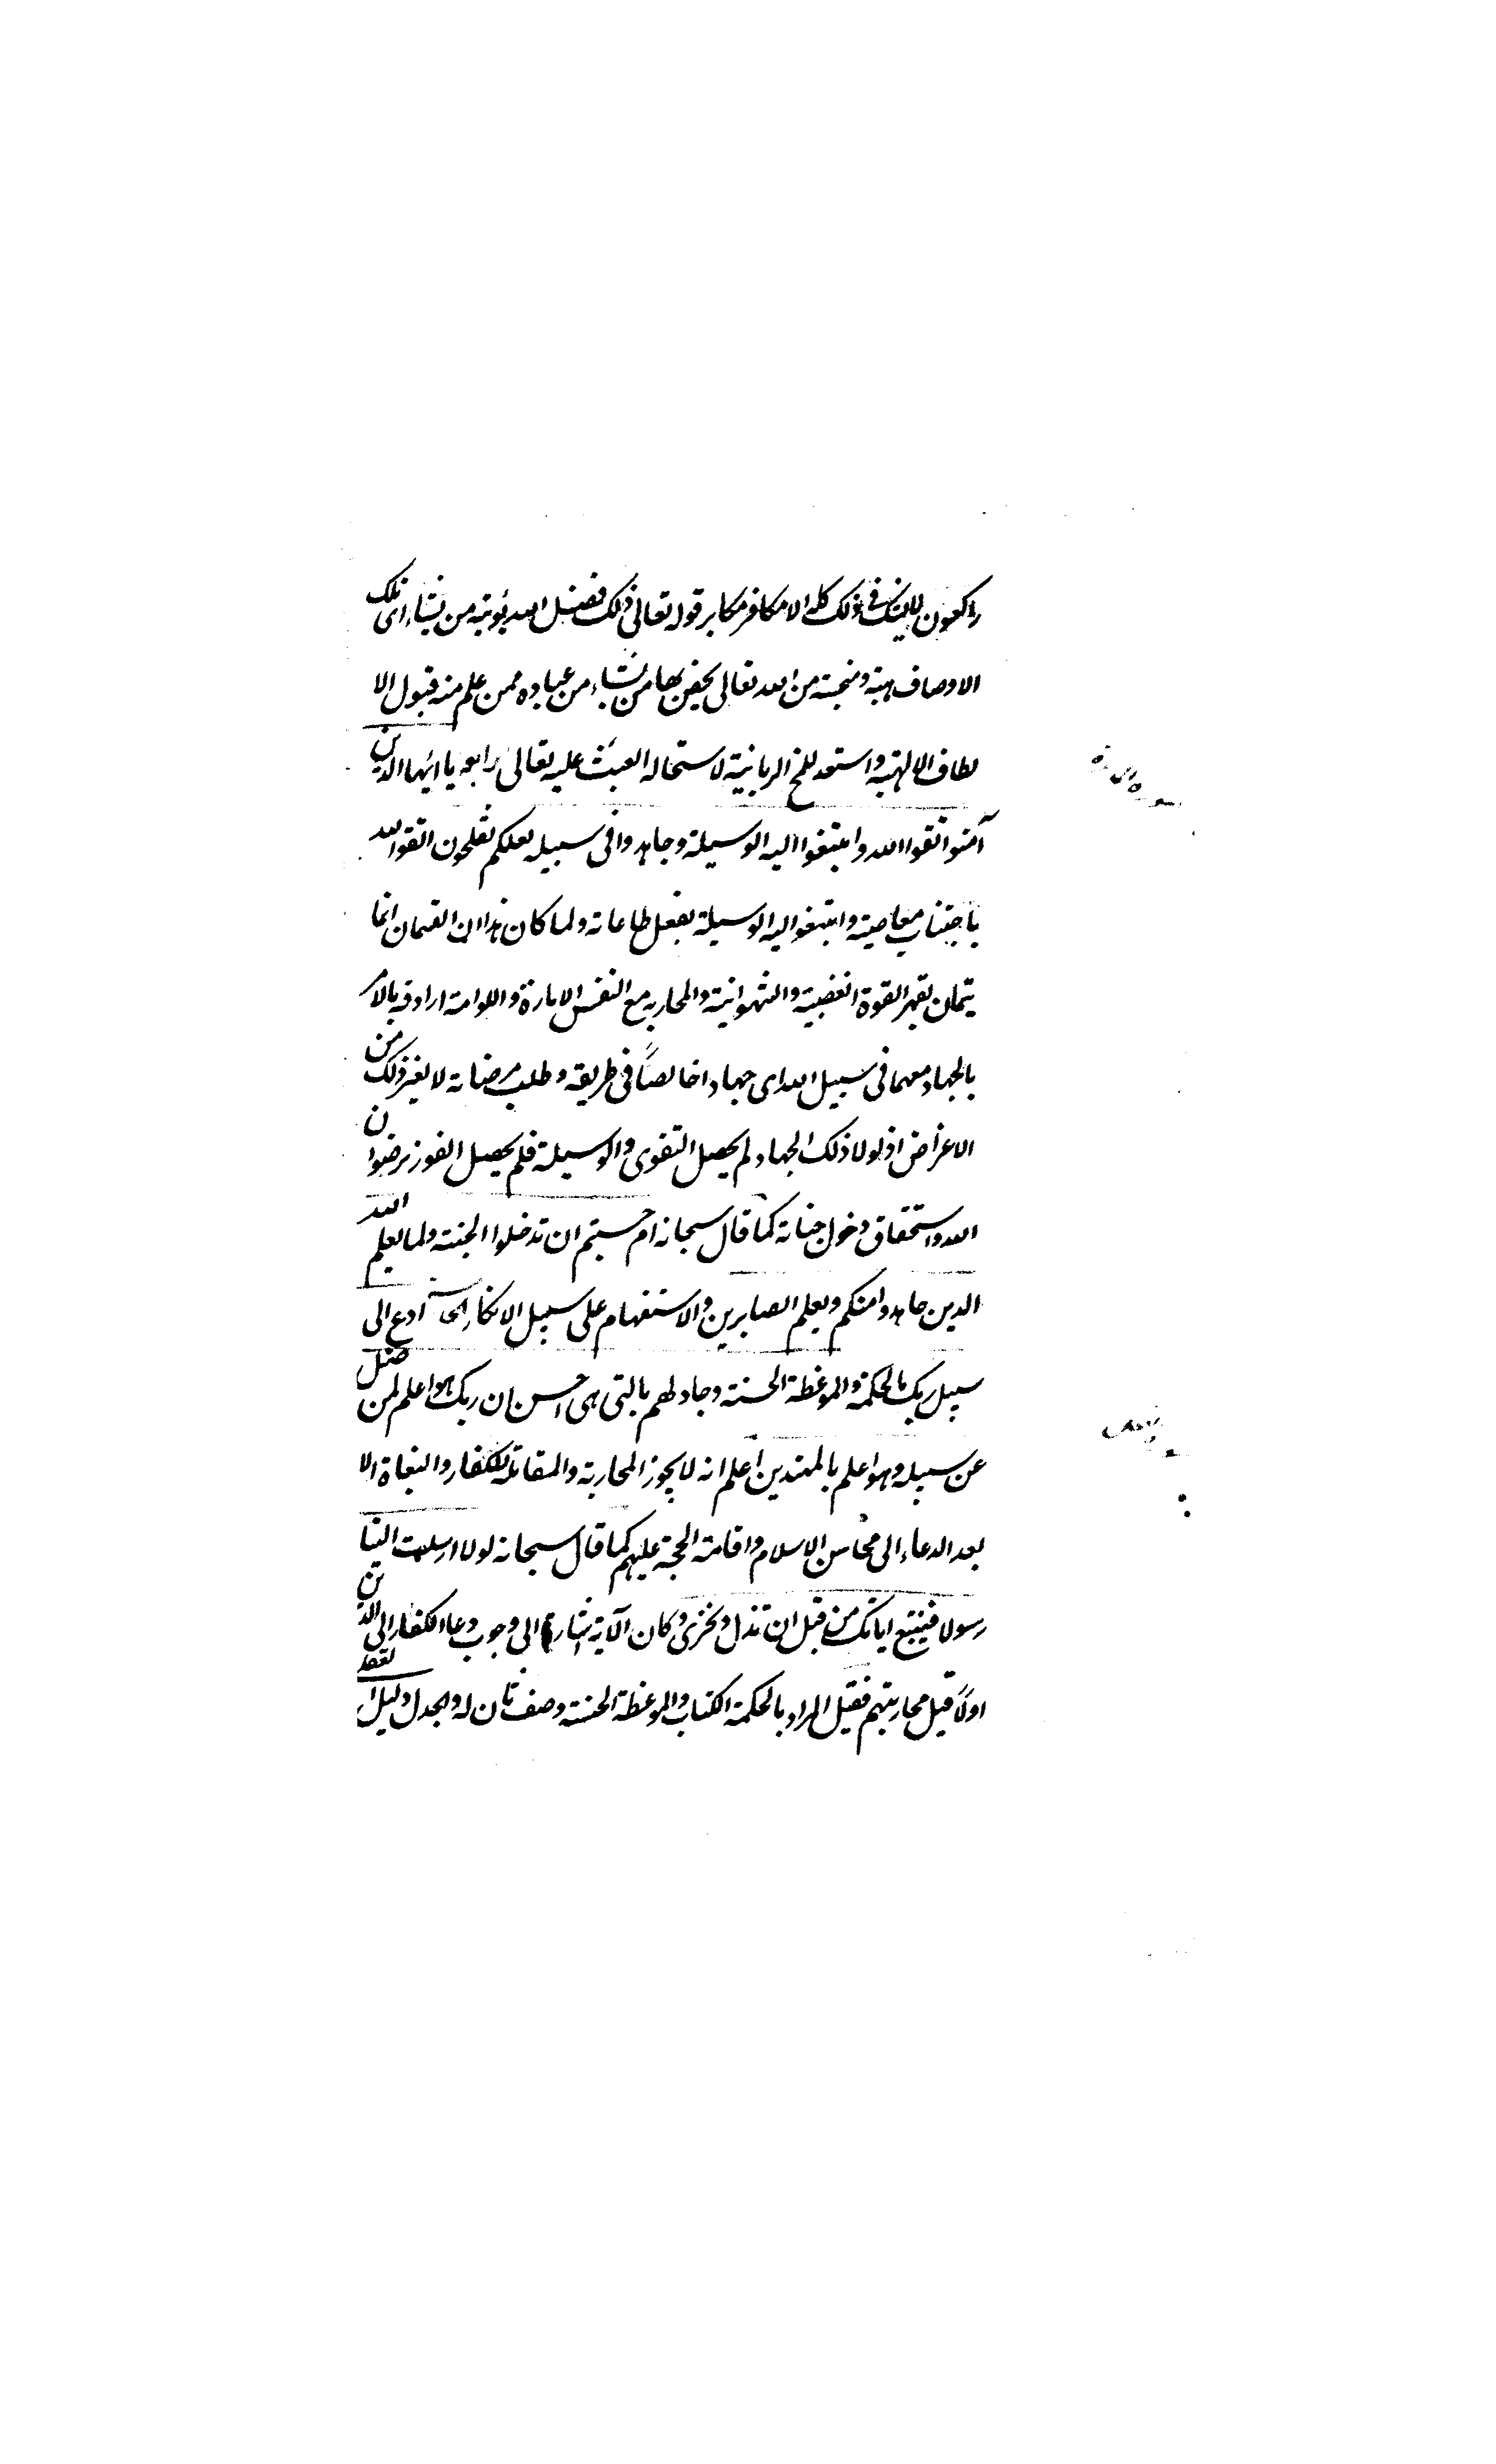 راكعون لايشك في ذلك كله الا مكافر مكابر قوله تعالى ذلك فضل الله يؤتيه من يشاء اى تلك
الاوصاف هبة ومنحة من الله تعالى يخص بها من يشاء من عباده ممن علم منه قبول الا
لطاف الالهية واستعد للمنح الربانية لاستحالة العبث عليه تعالى رابعه يا ايها الذين
آمنوا اتقوا الله وابتغوا اليه الوسيلة وجاهدوا فى سبيله لعلكم تفلحون اتقوا الله
باجتناب معاصيه وابتغوا اليه الوسيلة بفعل طاعاته ولما كان هذان القسمان انما
يتمان بقهر القوة الغضبية والشهوانية والمحاربه مع النفس الامارة واللوامة اردفه بالامر
بالجهاد معهما فى سبيل الله اى جهادا خالصاً فى طريقه وطلب مرضاته لا لغير ذلك من
الاغراض اذ لولا ذلك الجهاد لم يحصل التقوى والوسيلة فلم يحصل الفوز برضوان
الله واستحقاق دخول جناته كما قال سبحانه ام حسبتم ان تدخلوا الجنة ولما يعلم الله
الذين جاهدوا منكم ويعلم الصابرين والاستفهام على سبيل الانكار ادع الى
سبيل ربك بالحكمة والموعظة الحسنة وجادلهم بالتى هى احسن ان ربك هو اعلم بمن ضل
عن سبيله وهو اعلم بالمهتدين اعلم انه لا يجوز المحاربة والمقاتلة للكفار والبغاة الا
بعد الدعاء الى محاسن الاسلام واقامة الحجة عليهم كما قال سبحانه لولا ارسلت الينا
رسولا فنتبع اياتك من قبل ان نذل ونخزى وكان الآية اشارة الى وجوب دعاء الكفار الى الدين
اولاً قبل محاربتهم فقيل المراد بالحكمة الكتاب والموعظة الحسنة وصفتان له والجدل دليل